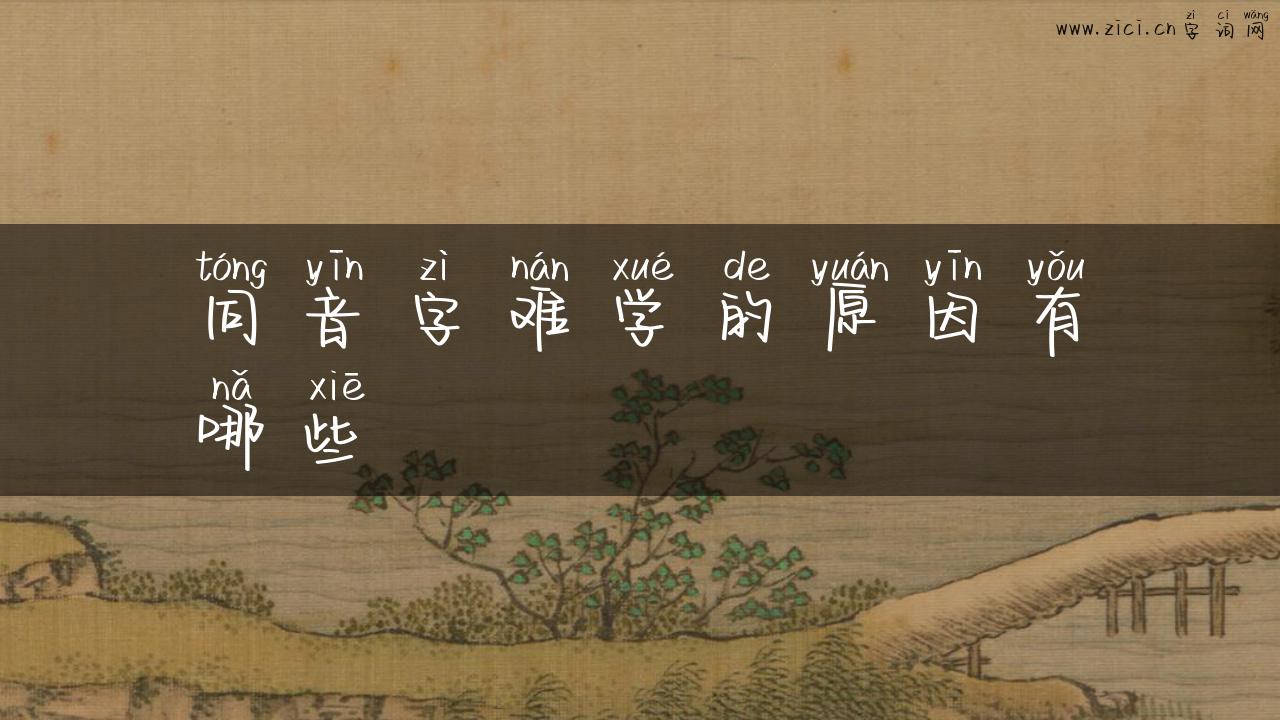 zì cí wǎng
www.zici.cn 字 词 网
tóng yīn zì nán xué de yuán yīn yǒu
同 音 字 难 学 的 原 因 有
nǎ xiē
哪 些